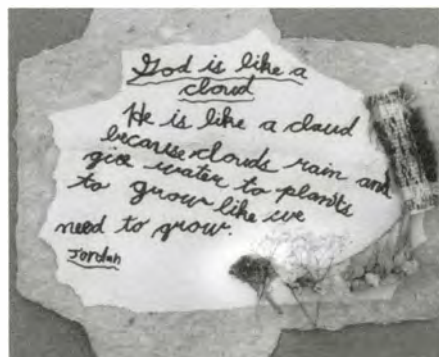 God is like a
cloud
He is like a cloud
because clouds rain and
give water to plants
to grow like we
need to grow.
Jordan